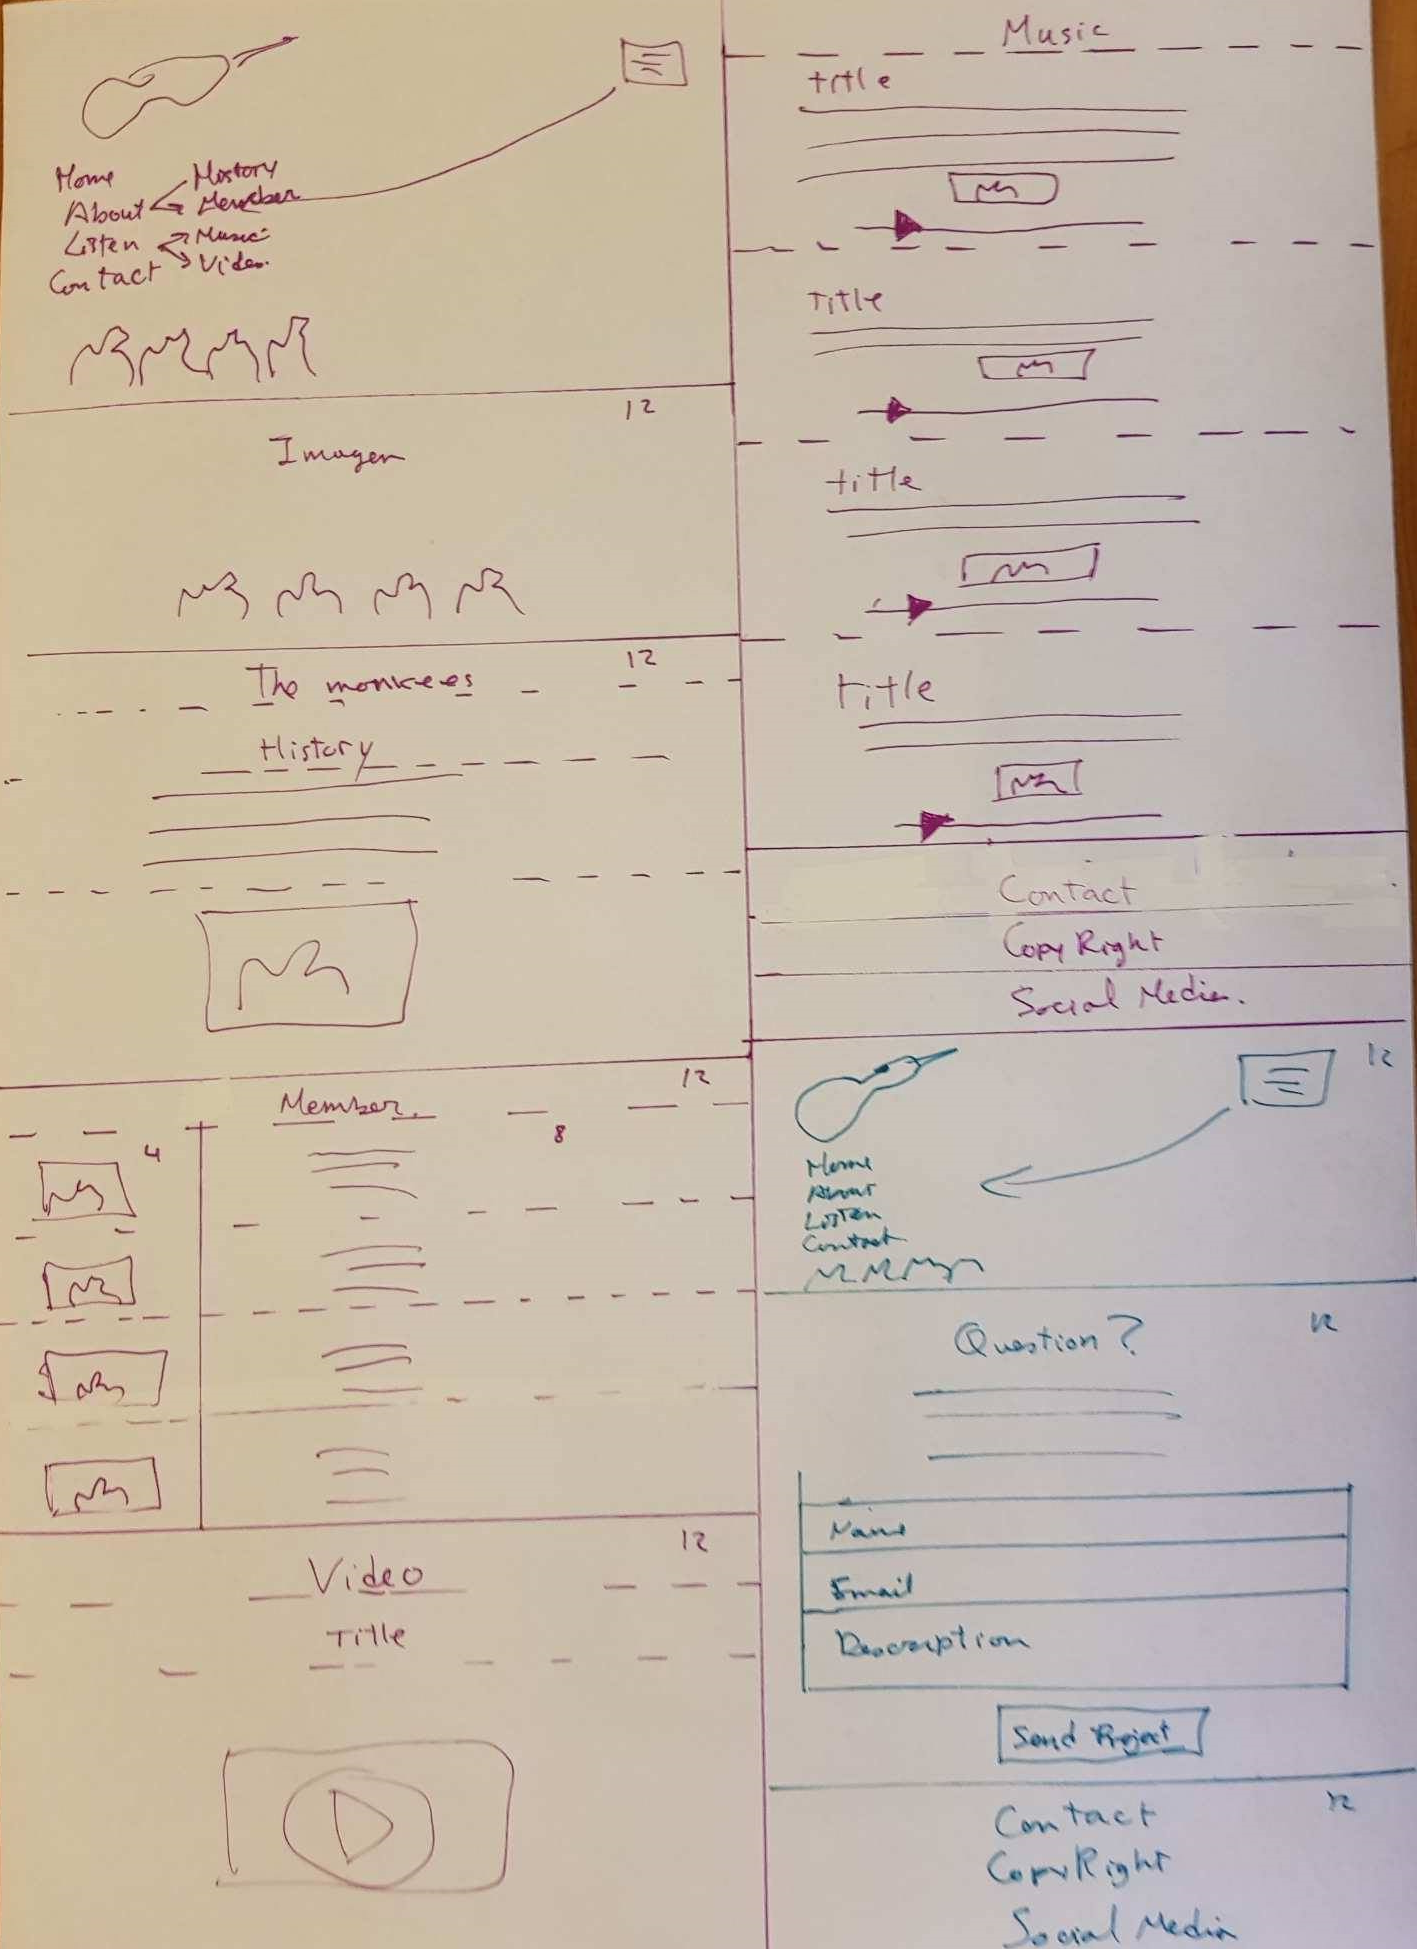 Home
About
History
Member
Listen
Music
Video
Contact
12
Imagen
12
The monkees
History
12
Member.
4
8
12
Video
Title
Music
title
Title
title
title
Contact
Copy Right
Social Media.
12
Home
About
Listen
Contact
12
Question?
Name
Email
Description
Send Project
12
Contact
CopyRight
Social Media